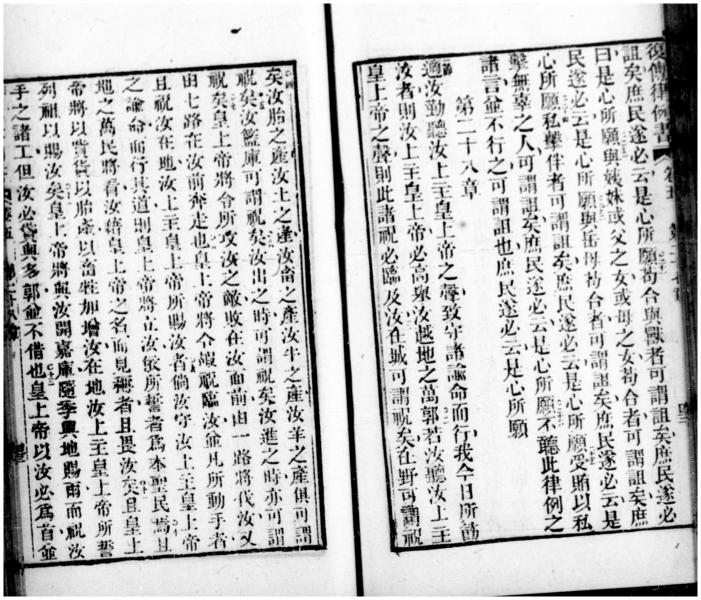 復傳律例書 卷五 第二十七章
詛矣庶民遂必云是心所願苟合與獸者可謂詛矣庶民遂必
曰是心所願與姊妹或父之女或母之女苟合者可謂詛矣庶
民遂必云是心所願與岳母苟合者可謂詛矣庶民遂必云是
心所願私擊伴者可謂詛矣庶民遂必云是心所願受賄以私
擊無辜之人可謂詛矣庶民遂必云是心所願不聽此律例之
諸言並不行之可謂詛也庶民遂必云是心所願
第二十八章
適汝勤聽汝上主皇上帝之聲致守諸諭命而行我今日所諭
汝者則汝上主皇上帝必高舉汝越地之萬郭若汝聽汝上主
皇上帝之聲則此諸祝必臨及汝在城可謂祝矣在野可謂祝
矣汝胎之產汝土之產汝畜之產汝牛之產汝羊之產俱可謂
祝矣汝籃庫可謂祝矣汝出之時可謂祝矣汝進之時亦可謂
祝矣皇上帝將令所攻汝之敵敗在汝面前由一路將伐汝又
由七路在汝前奔走也皇上帝將令嘏祝臨汝並凡所動手者
且祝汝在地汝上主皇上帝所賜汝者倘汝守汝上主皇上帝
之諭命而行其道則皇上帝將立汝依所誓者為本聖民焉且
地之萬民將看汝藉皇上帝之名而見稱者且畏汝矣且皇上
帝將以貨財以胎產以畜牲加增汝在地汝上主皇上帝所誓
列祖以賜汝矣皇上帝將與汝開嘉廠隨季與地賜雨而祝汝
手之諸工但汝必貸與多郭並不借也皇上帝以汝必為首並